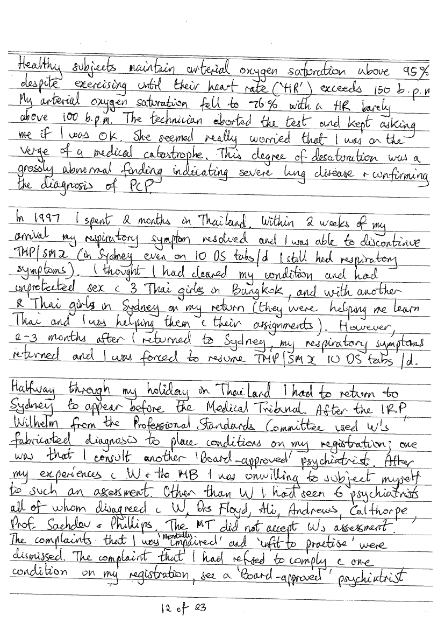 Healthy subjects maintain arterial oxygen saturation above 95%
despite exercising until their heart rate ('HR') exceeds 150 b.p.m
My arterial oxygen saturation fell to 76% with a HR barely
above 100 b.p.m. The technician aborted the test and kept asking
me if I was OK. She seemed really worried that I was on the
verge of a medical catastrophe. This degree of desaturation was a
grossly abnormal finding indicating severe lung disease + confirming
the diagnosis of PCP
In 1997 I spent 2 months in Thailand. Within 2 weeks of my
arrival my respiratory symptom resolved and I was able to discontinue
TMP/SMX (in Sydney even on 10 DS tabs/d I still had respiratory
symptoms). I thought I had cleared my condition and had
unprotected sex c 3 Thai girls in Bangkok, and with another
2 Thai girls in Sydney on my return (they were helping me learn
Thai and I was helping them c their assignments). However,
2-3 months after I returned to Sydney, my respiratory symptoms
returned and I was forced to resume TMP/SMX 10 DS tabs /d.
Halfway through my holiday in Thailand I had to return to
Sydney to appear before the Medical Tribunal. After the I.R.P,
Wilhelm from the Professional Standards Committee used W's
fabricated diagnosis to place conditions on my registration; one
was that I consult another 'Board-approved' psychiatrist. After
my experiences c W + the MB I was unwilling to subject myself
to such an assessment. Other than W I had seen 6 psychiatrists
all of whom disagreed c W, Drs Floyd, Ali, Andrews, Calthorpe,
Prof. Sachdev + Phillips. The MT did not accept W's assessment.
The complaints that I was 'mentally impaired' and 'unfit to practise' were
dismissed. The complaint that I had refused to comply c one
condition on my registration, see a 'Board-approved' psychiatrist
12 of 23